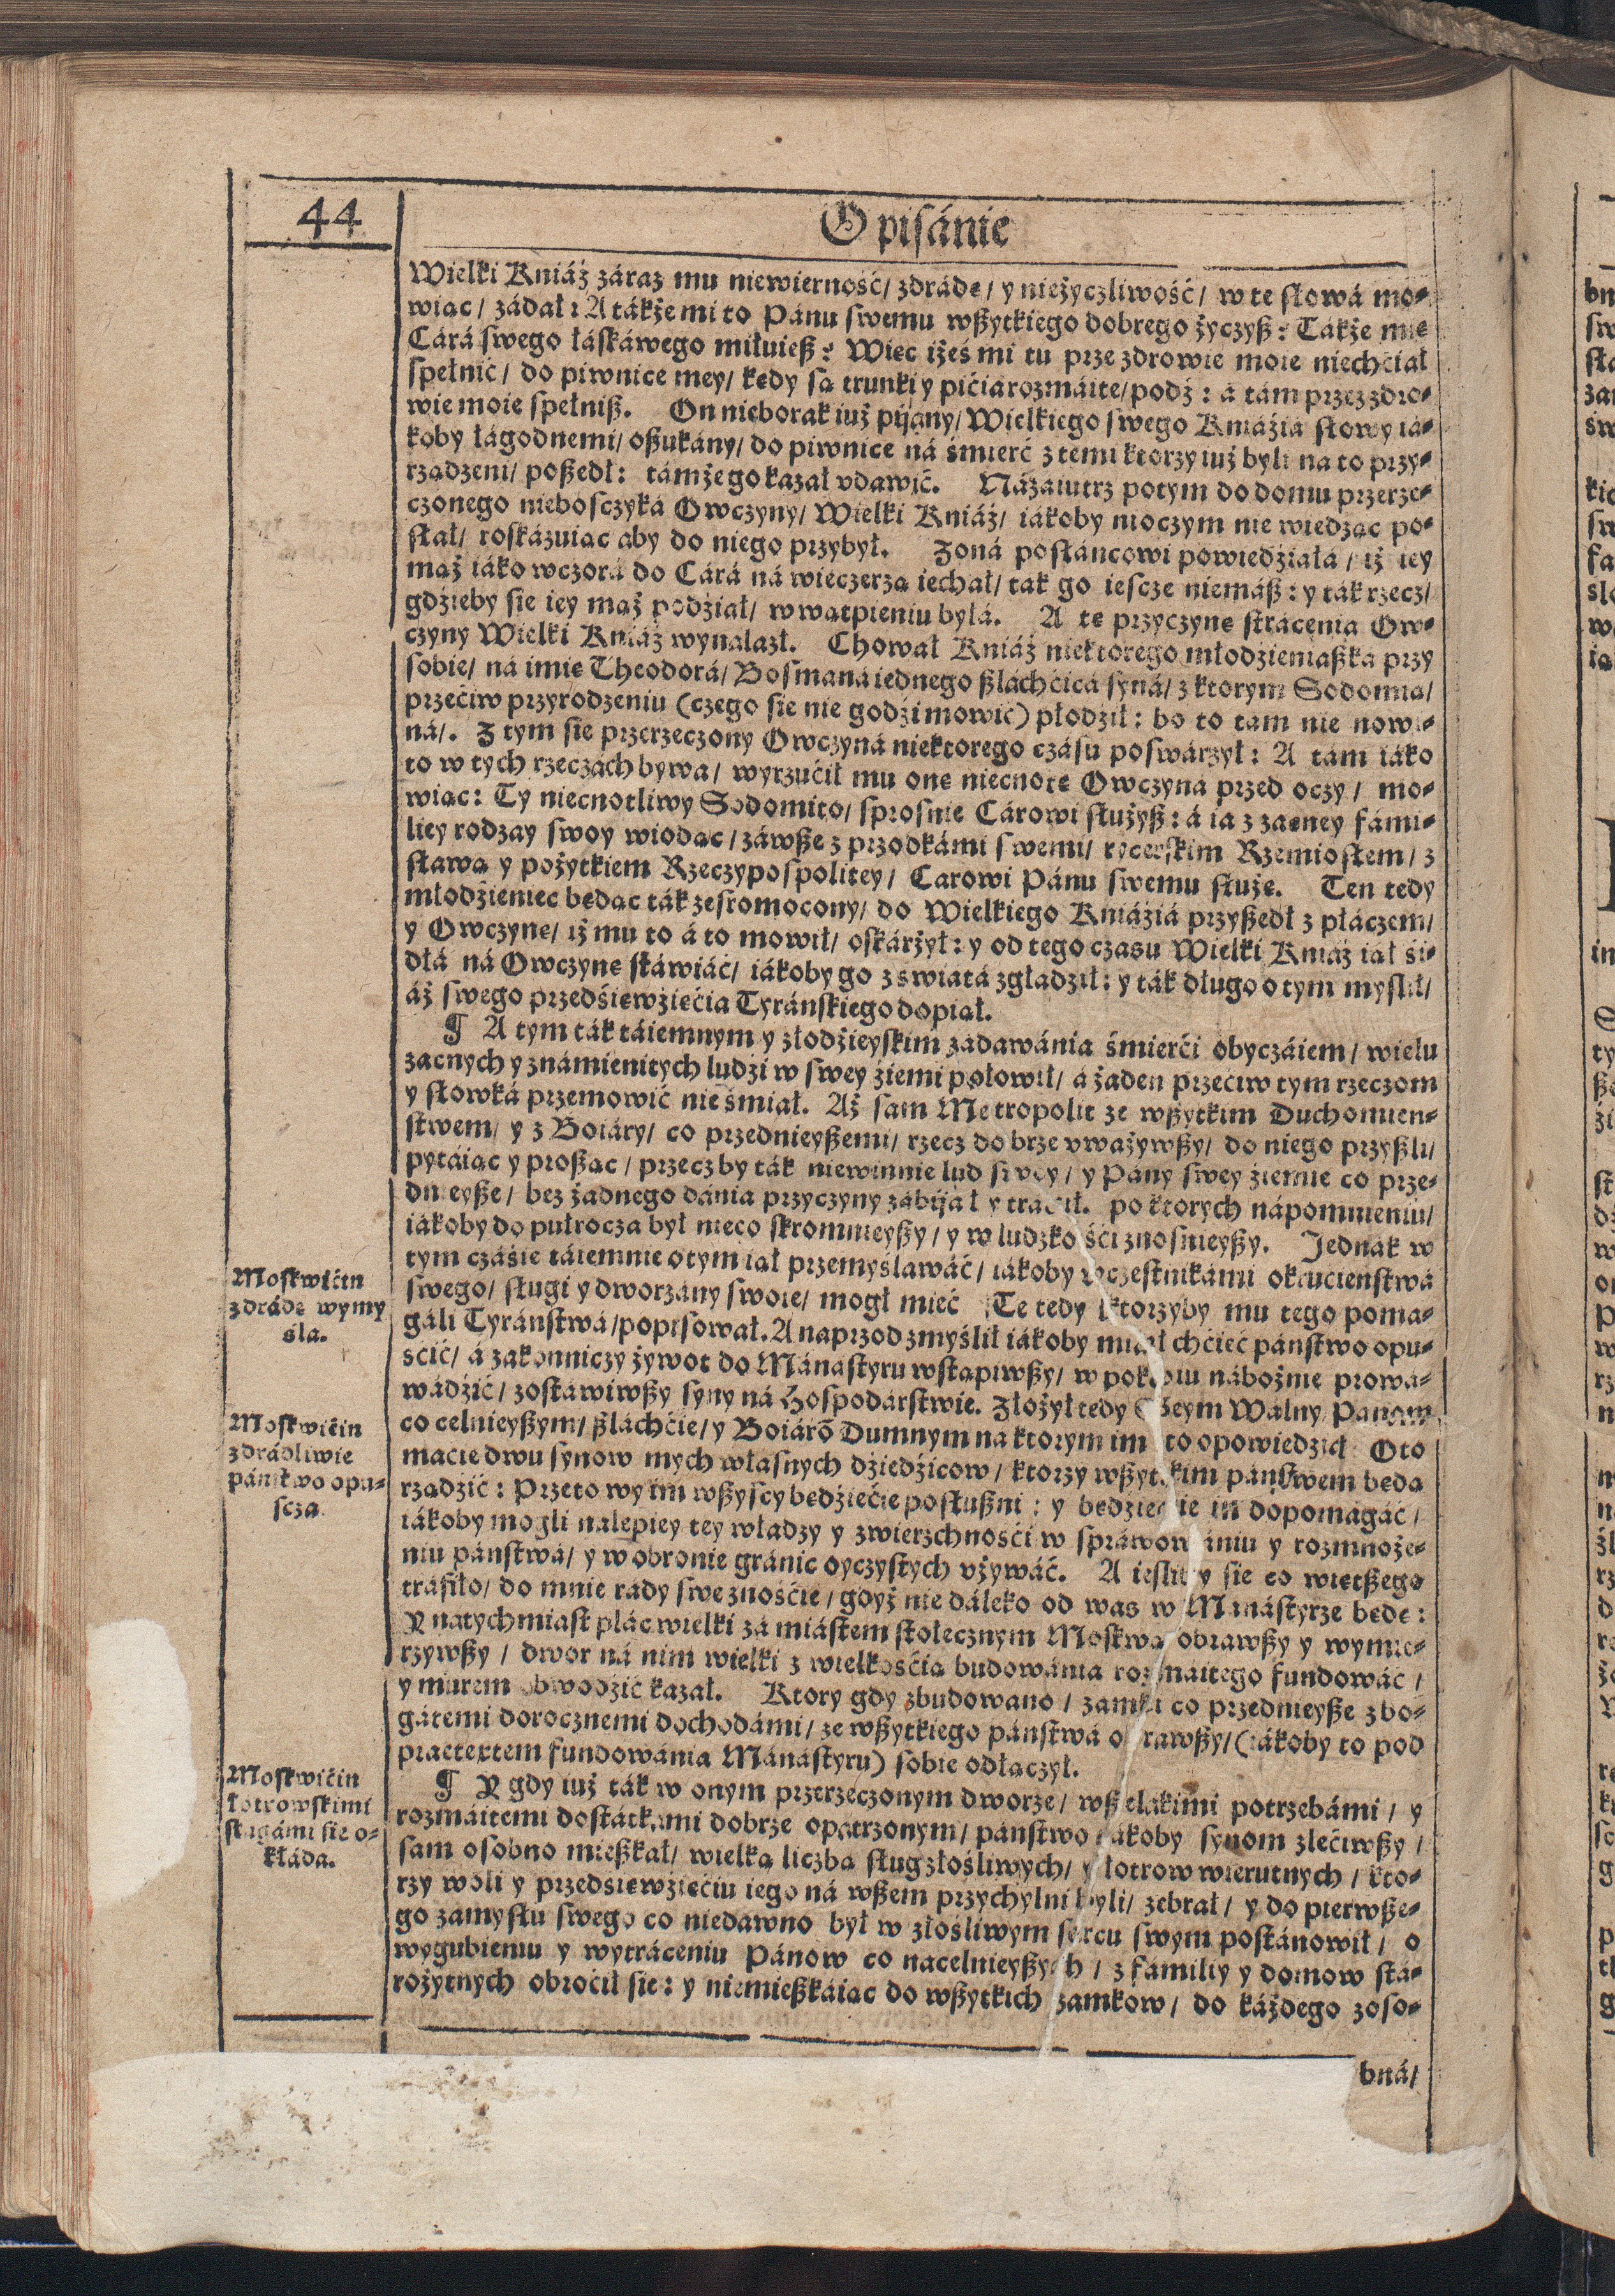 44
Opisánie
Wielki Kniáź záraz mu niewierność/ zdrádę/ y nieżyczliwość/ w te słowá mo-
wiąc/ zádał: A tákże mi to Pánu swemu wßytkiego dobrego życzyß: Tákże mię
Cárá swego łáskáwego miłuieß: Więc iżeś mi tu prze zdrowie moie niechćiał
spełnić/ do piwnice mey/ kędy są trunki y pićia rozmáite/ podź: á tám przez zdro-
wie moie spełniß. On nieborak iuż pijány/ Wielkiego swego Kniáźiá słowy iá-
koby łágodnemi/ oßukány/ do piwnice ná śmierć z temi ktorzy iuż byli na to przy-
rządzeni/ poßedł: támże go kazał vdawić. Názaiutrz potym do domu przerze-
czonego nieboszczyká Owczyny/ Wielki Kniáź/ iákoby nioczym nie wiedząc po-
słał/ roskázuiąc aby do niego przybył. Zoná posłáncowi powiedźiáłá/ iż iey
mąż iáko wczorá do Cárá ná wieczerzą iechał/ tak go iescze niemáß: y ták rzecz/
gdźieby się iey mąż podźiał/ w wątpieniu byłá. A tę przyczynę strácenia Ow-
czyny Wielki Kniáź wynalazł. Chował Kniáź niektorego młodźieniaßká przy
sobie/ ná imię Theodorá/ Bosmaná iednego ßláchćicá syná/ z ktorym Sodomią/
przećiw przyrodzeniu (czego się nie godźi mowić) płodźił: bo to tam nie nowi-
ná/. Z tym się przerzeczony Owczyná niektorego czásu poswárzył: A tám iáko
to w tych rzeczách bywa/ wyrzućił mu onę niecnotę Owczyná przed oczy/ mo-
wiąc: Ty niecnotliwy Sodomito/ sprosnie Cárowi służyß: á ia z zacney fámi-
liey rodzay swoy wiodąc/ záwße z przodkámi swemi/ rycerskim Rzemiosłem/ z
sławą y pożytkiem Rzeczypospolitey/ Carowi Pánu swemu służę. Ten tedy
młodźieniec będąc ták zesromocony/ do Wielkiego Kniáźiá przyßedł z płáczem/
y Owczynę/ iż mu to á to mowił/ oskárżył: y od tego czasu Wielki Kniáź iął śi-
dłá ná Owczynę stáwiáć/ iákoby go z świátá zgładźił: y ták długo o tym myślił/
áż swego przedśięwźięćia Tyránskiego dopiął.
¶ A tym ták táiemnym y złodźieyskim zádawánia śmierći obyczáiem/ wielu
zacnych y známienitych ludźi w swey źiemi połowił/ á żaden przećiw tym rzeczom
y słowká przemowić nie śmiał. Aż sam Metropolit ze wßytkim Duchowien-
stwem/ y z Boiáry/ co przednieyßemi/ rzecz dobrze vważywßy/ do niego przyßli/
pytáiąc y proßąc/ przecz by ták niewinnie lud swoy/ y Pány swey źiemie co prze-
dnieyße/ bez żadnego dánia przyczyny zábijał y tracił. po ktorych nápomnieniu/
iákoby do pułrocza był nieco skromnieyßy/ y w ludzkośći znośnieyßy. Jednák w
tym czáśie táiemnie o tym iął przemyślawáć/ iákoby vczestnikámi okrucienstwá
swego/ sługi y dworzány swoie/ mogł mieć Te tedy ktorzyby mu tego poma-
gáli Tyránstwá/ popisował. A naprzod zmyślił iákoby miał chćieć páństwo opu-
śćić/ á zakonniczy żywot do Mánastyru wstąpiwßy/ w pokoiu nábożnie prowá-
wádźić/ zostáwiwßy syny ná Hospodárstwie. Złożył tedy Seym Wálny Pánom
co celnieyßym/ ßláchćie/ y Boiárõ Dumnym na ktorym im to opowiedźiał Oto
macie dwu synow mych własnych dźiedźicow/ ktorzy wßytkim páństwem będą
rządźić: Przeto wy im wßyscy będźiećie posłußni: y będźiećie im dopomagáć/
iákoby mogli nalepiey tey władzy y zwierzchnośći w spráwowániu y rozmnoże-
niu páństwá/ y w obronie gránic oyczystych vżywáć. A iesliby się co więtßego
tráfiło/ do mnie rády swe znośćie/ gdyż nie dáleko od was w Mánástyrze będę:
Y natychmiast plác wielki zá miástem stołecznym Moskwą obrawßy y wymie-
rzywßy/ dwor ná nim wielki z wielkośćią budowánia rozmáitego fundowáć/
y murem obwodźić kazał. Ktory gdy zbudowano/ zamki co przednieyße z bo-
gátemi dorocznemi dochodámi/ ze wßytkiego páństwá obrawßy/ (iákoby to pod
praetextem fundowánia Mánástyru) sobie odłączył.
¶ Y gdy iuż ták w onym przerzeczonym dworze/ wßelákimi potrzebámi/ y
rozmáitemi dostátkami dobrze opátrzonym/ páństwo iákoby synom zlećiwßy/
sam osobno mießkał/ wielką liczbą sług złośliwych/ y łotrow wierutnych/ kto-
rzy woli y przedśięwźięćiu iego ná wßem przychylni byli/ zebrał/ y do pierwße-
go zamysłu swego co niedawno był w złośliwym sercu swym postánowił/ o
wygubieniu y wytráceniu Pánow co nacelnieyßych/ z familiy y domow stá-
rożytnych obroćił się: y niemießkáiąc do wßytkich zamkow/ do káżdego zoso-
bná/
Moskwićin
zdrádę wymy
śla.
Moskwićin
zdrádliwie
páństwo opu-
scza
Moskwićin
łotrowskimi
sługámi się o-
kłáda.